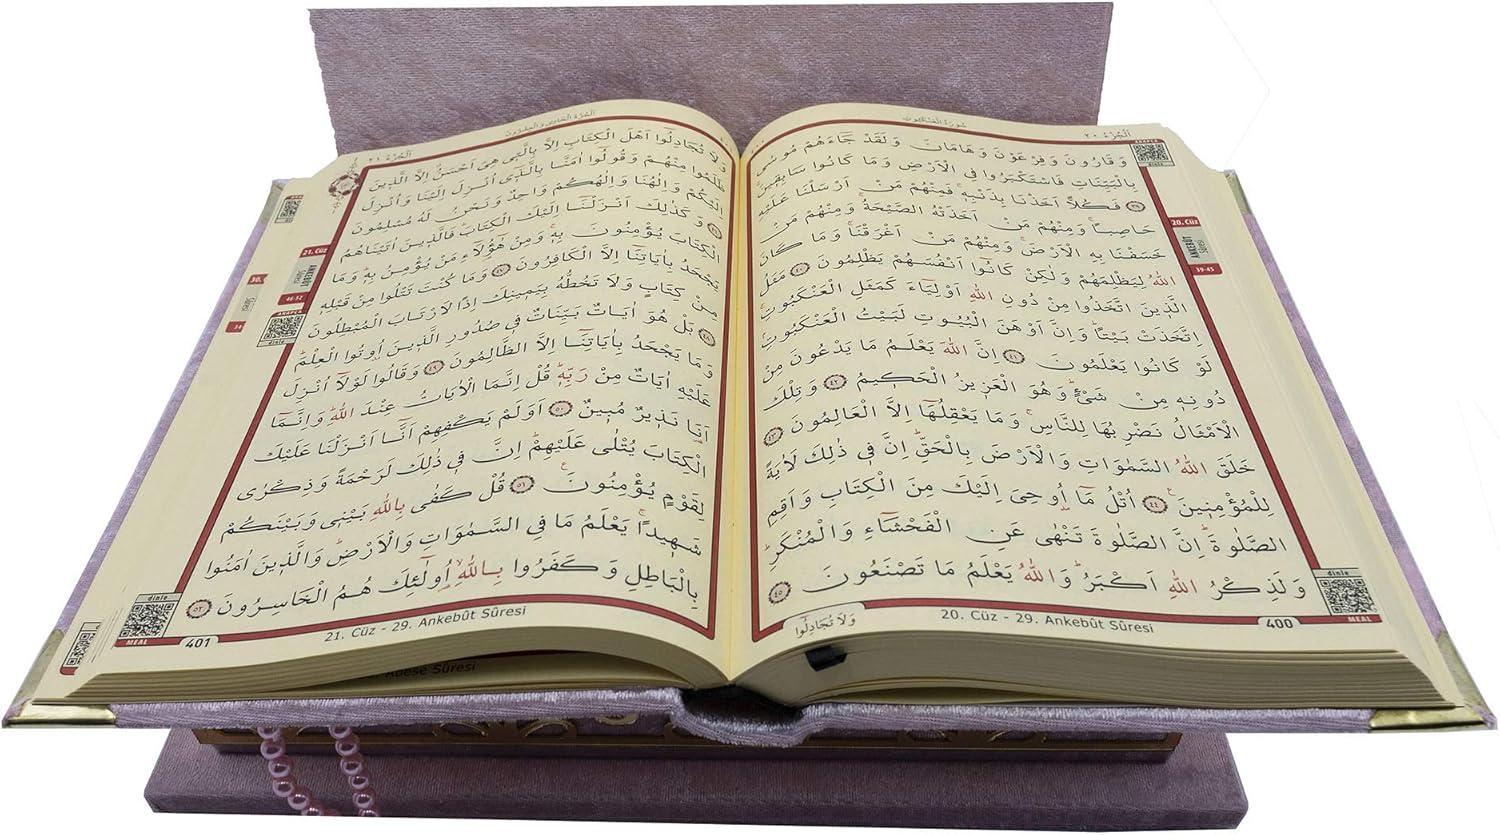 اَلْجُزْءُ ٢٠
سُورَةُ الْعَنْكَبُوتِ
وَقَارُونَ وَفِرْعَوْنَ وَهَامَانَ وَلَقَدْ جَٓاءَهُمْ مُوسٰى
بِالْبَيِّنَاتِ فَاسْتَكْبَرُوا فِي الْاَرْضِ وَمَا كَانُوا سَابِقٖينَۚ
﴿٣٩﴾ فَكُلًّا اَخَذْنَا بِذَنْبِهٖۚ فَمِنْهُمْ مَنْ اَرْسَلْنَا عَلَيْهِ
حَاصِبًاۚ وَمِنْهُمْ مَنْ اَخَذَتْهُ الصَّيْحَةُۚ وَمِنْهُمْ مَنْ
خَسَفْنَا بِهِ الْاَرْضَۚ وَمِنْهُمْ مَنْ اَغْرَقْنَاۚ وَمَا كَانَ
اللّٰهُ لِيَظْلِمَهُمْ وَلٰكِنْ كَانُٓوا اَنْفُسَهُمْ يَظْلِمُونَ ﴿٤٠﴾ مَثَلُ
الَّذٖينَ اتَّخَذُوا مِنْ دُونِ اللّٰهِ اَوْلِيَٓاءَ كَمَثَلِ الْعَنْكَبُوتِۚ
اِتَّخَذَتْ بَيْتًاۜ وَاِنَّ اَوْهَنَ الْبُيُوتِ لَبَيْتُ الْعَنْكَبُوتِۢ
لَوْ كَانُوا يَعْلَمُونَ ﴿٤١﴾ اِنَّ اللّٰهَ يَعْلَمُ مَا يَدْعُونَ مِنْ
دُونِهٖ مِنْ شَيْءٍۜ وَهُوَ الْعَزٖيزُ الْحَكٖيمُ ﴿٤٢﴾ وَتِلْكَ
الْاَمْثَالُ نَضْرِبُهَا لِلنَّاسِۚ وَمَا يَعْقِلُهَٓا اِلَّا الْعَالِمُونَ ﴿٤٣﴾
خَلَقَ اللّٰهُ السَّمٰوَاتِ وَالْاَرْضَ بِالْحَقِّۜ اِنَّ فٖي ذٰلِكَ لَاٰيَةً
لِلْمُؤْمِنٖينَ۟ ﴿٤٤﴾ اُتْلُ مَٓا اُوحِيَ اِلَيْكَ مِنَ الْكِتَابِ وَاَقِمِ
الصَّلٰوةَۜ اِنَّ الصَّلٰوةَ تَنْهٰى عَنِ الْفَحْشَٓاءِ وَالْمُنْكَرِۜ
وَلَذِكْرُ اللّٰهِ اَكْبَرُۜ وَاللّٰهُ يَعْلَمُ مَا تَصْنَعُونَ ﴿٤٥﴾
وَلَا تُجَادِلُٓوا
20. Cüz - 29. Ankebût Sûresi
400
MEAL
dinle
20. Cüz
ANKEBÛT
Sûresi
39-45
اَلْجُزْءُ ٢١
اَلْجُزْءُ الْحَادٖي وَالْعِشْرُونَ
وَلَا تُجَادِلُٓوا اَهْلَ الْكِتَابِ اِلَّا بِالَّتٖي هِيَ اَحْسَنُۗ اِلَّا الَّذٖينَ
ظَلَمُوا مِنْهُمْ وَقُولُٓوا اٰمَنَّا بِالَّذٖٓي اُنْزِلَ اِلَيْنَا وَاُنْزِلَ
اِلَيْكُمْ وَاِلٰهُنَا وَاِلٰهُكُمْ وَاحِدٌ وَنَحْنُ لَهُ مُسْلِمُونَ
﴿٤٦﴾ وَكَذٰلِكَ اَنْزَلْنَٓا اِلَيْكَ الْكِتَابَۜ فَالَّذٖينَ اٰتَيْنَاهُمُ
الْكِتَابَ يُؤْمِنُونَ بِهٖۚ وَمِنْ هٰٓؤُ۬لَٓاءِ مَنْ يُؤْمِنُ بِهٖۜ وَمَا
يَجْحَدُ بِاٰيَاتِنَٓا اِلَّا الْكَافِرُونَ ﴿٤٧﴾ وَمَا كُنْتَ تَتْلُوا مِنْ قَبْلِهٖ
مِنْ كِتَابٍ وَلَا تَخُطُّهُ بِيَمٖينِكَ اِذًا لَارْتَابَ الْمُبْطِلُونَ
﴿٤٨﴾ بَلْ هُوَ اٰيَاتٌ بَيِّنَاتٌ فٖي صُدُورِ الَّذٖينَ اُو۫تُوا الْعِلْمَۜ
وَمَا يَجْحَدُ بِاٰيَاتِنَٓا اِلَّا الظَّالِمُونَ ﴿٤٩﴾ وَقَالُوا لَوْلَٓا اُنْزِلَ
عَلَيْهِ اٰيَاتٌ مِنْ رَبِّهٖۜ قُلْ اِنَّمَا الْاٰيَاتُ عِنْدَ اللّٰهِۜ وَاِنَّمَٓا
اَنَا۬ نَذٖيرٌ مُبٖينٌ ﴿٥٠﴾ اَوَلَمْ يَكْفِهِمْ اَنَّٓا اَنْزَلْنَا عَلَيْكَ
الْكِتَابَ يُتْلٰى عَلَيْهِمْۜ اِنَّ فٖي ذٰلِكَ لَرَحْمَةً وَذِكْرٰى
لِقَوْمٍ يُؤْمِنُونَ۟ ﴿٥١﴾ قُلْ كَفٰى بِاللّٰهِ بَيْنٖي وَبَيْنَكُمْ
شَهٖيدًاۚ يَعْلَمُ مَا فِي السَّمٰوَاتِ وَالْاَرْضِۜ وَالَّذٖينَ اٰمَنُوا
بِالْبَاطِلِ وَكَفَرُوا بِاللّٰهِۙ اُو۬لٰٓئِكَ هُمُ الْخَاسِرُونَ ﴿٥٢﴾
21. Cüz - 29. Ankebût Sûresi
401
MEAL
dinle
21. Cüz
ANKEBÛT
Sûresi
46-52
ARAPÇA
dinle
30.
Abese Sûresi